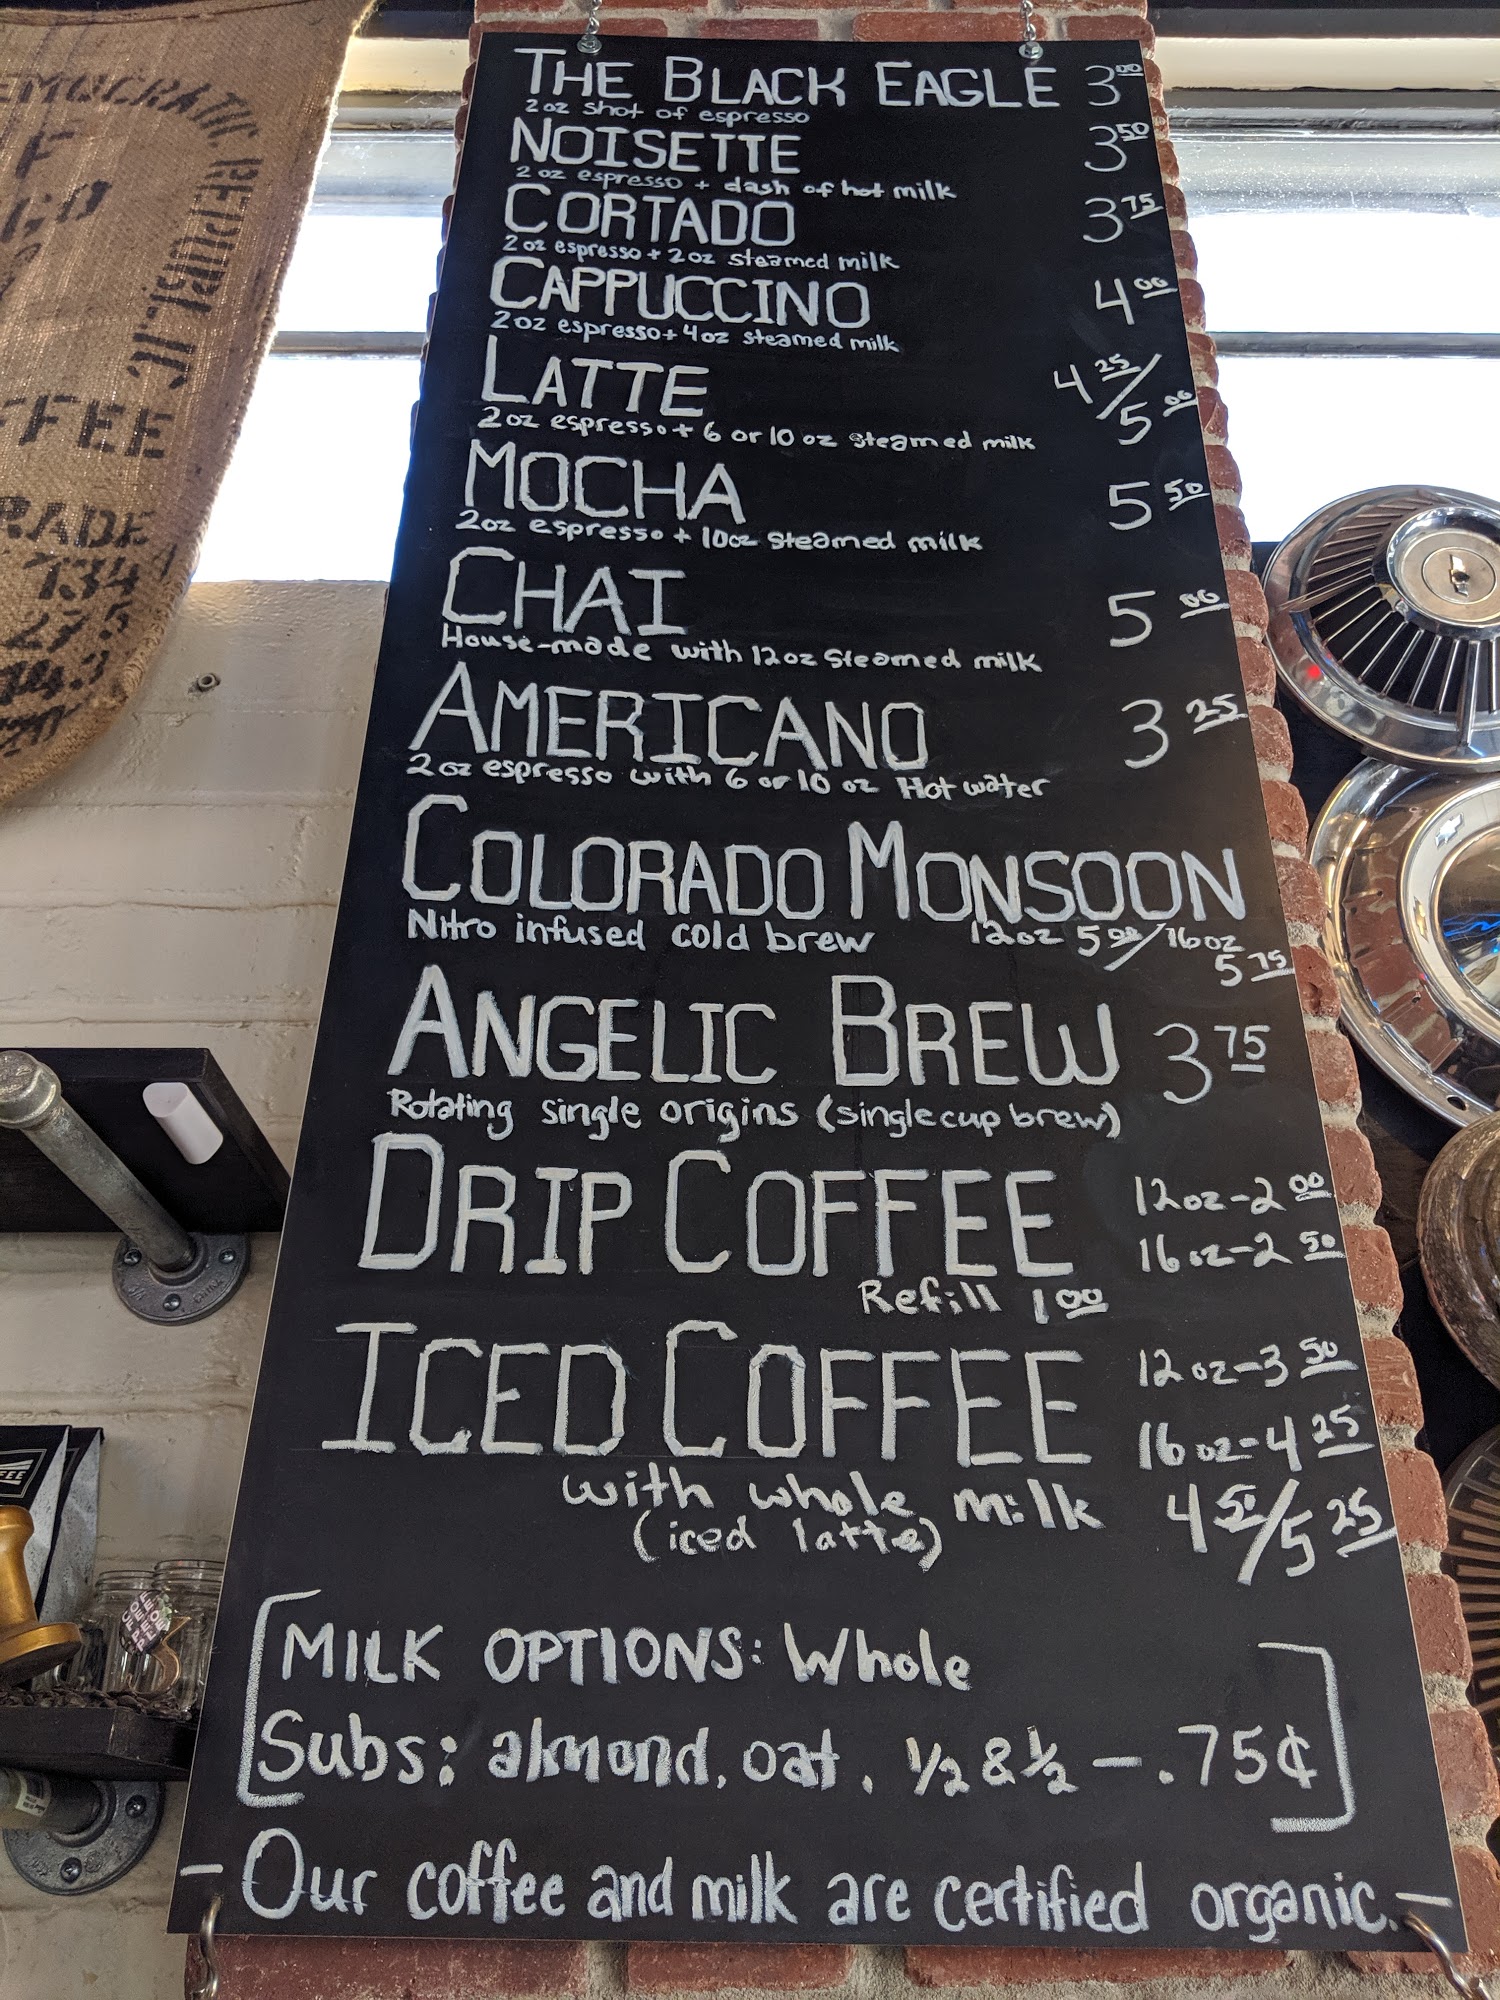 THE BLACK EAGLE 3 00
2 oz shot of espresso
NOISETTE 3 50
2 oz espresso + dash of hot milk
CORTADO 3 75
2 oz espresso + 2 oz steamed milk
CAPPUCCINO 4 00
2 oz espresso + 4 oz steamed milk
LATTE 4 25/5 00
2 oz espresso + 6 or 10 oz steamed milk
MOCHA 5 50
2 oz espresso + 10 oz steamed milk
CHAI 5 00
House-made with 12 oz Steamed milk
AMERICANO 3 25
2 oz espresso with 6 or 10 oz Hot water
COLORADO MONSOON
Nitro infused cold brew 12oz 5 00/16oz
5 75
ANGELIC BREW 3 75
Rotating single origins (single cup brew)
DRIP COFFEE 12 oz - 2 00
16 oz - 2 50
Refill 1 00
ICED COFFEE 12 oz - 3 50
16 oz - 4 25
with whole milk 4 50/5 25
(iced latte)
MILK OPTIONS: Whole
Subs: almond, oat, ½ & ½ - .75¢
- Our coffee and milk are certified organic. -
EMOCRATIC REPUBLIC
FFEE
RADE
134
27.5
FEE